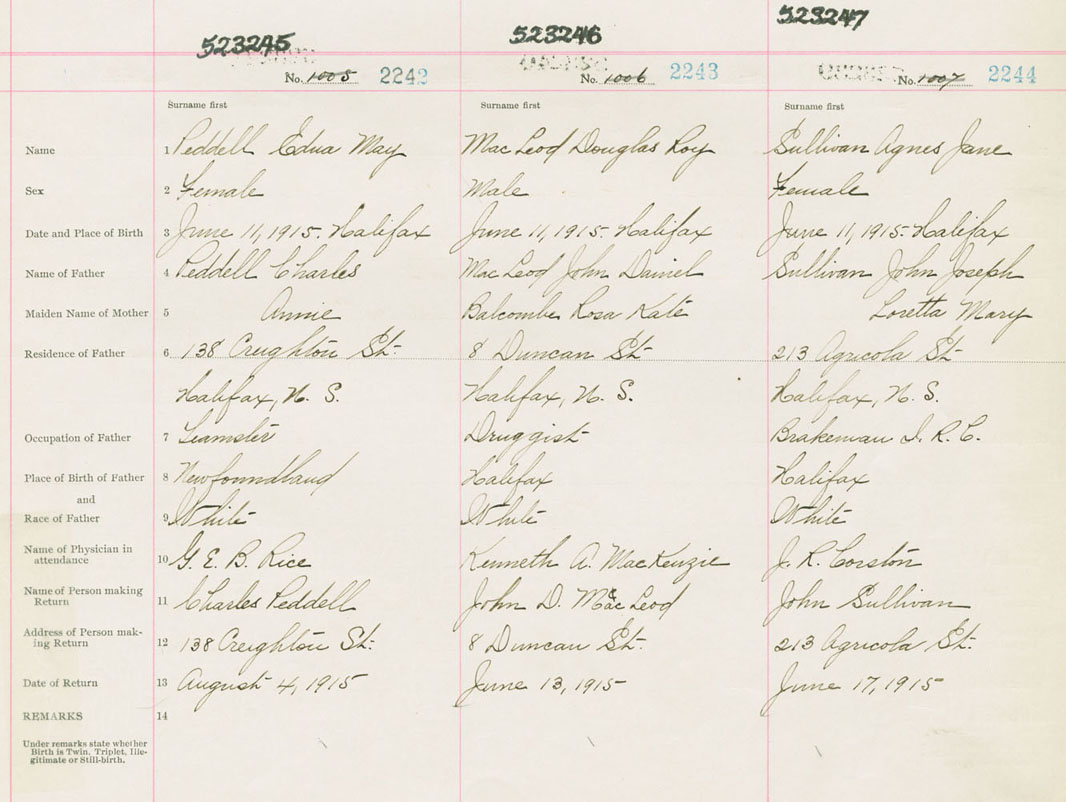 523245 523246 523247
No. 1005 2242 No. 1006 2243 No. 1007 2244
Surname first Surname first Surname first
Name 1 Peddell Edna May Mac Leod Douglas Roy Sullivan Agnes Jane
Sex 2 Female Male Female
Date and Place of Birth 3 June 11, 1915. Halifax June 11, 1915. Halifax June 11, 1915. Halifax
Name of Father 4 Peddell Charles Mac Leod John Daniel Sullivan John Joseph
Maiden Name of Mother 5 Annie Balcombe Rosa Kate Loretta Mary
Residence of Father 6 138 Creighton St. 8 Duncan St. 213 Agricola St.
Halifax, N. S. Halifax, N. S. Halifax, N. S.
Occupation of Father 7 Teamster Druggist Brakeman I. R. C.
Place of Birth of Father 8 Newfoundland Halifax Halifax
and
Race of Father 9 White White White
Name of Physician in
attendance 10 G. E. B. Rice Kenneth A. MacKenzie J. R. Corston
Name of Person making
Return 11 Charles Peddell John D. Mac Leod John Sullivan
Address of Person mak-
ing Return 12 138 Creighton St. 8 Duncan St. 213 Agricola St.
Date of Return 13 August 4, 1915 June 13, 1915 June 17, 1915
REMARKS 14
Under remarks state whether
Birth is Twin, Triplet, Ille-
gitimate or Still-birth.